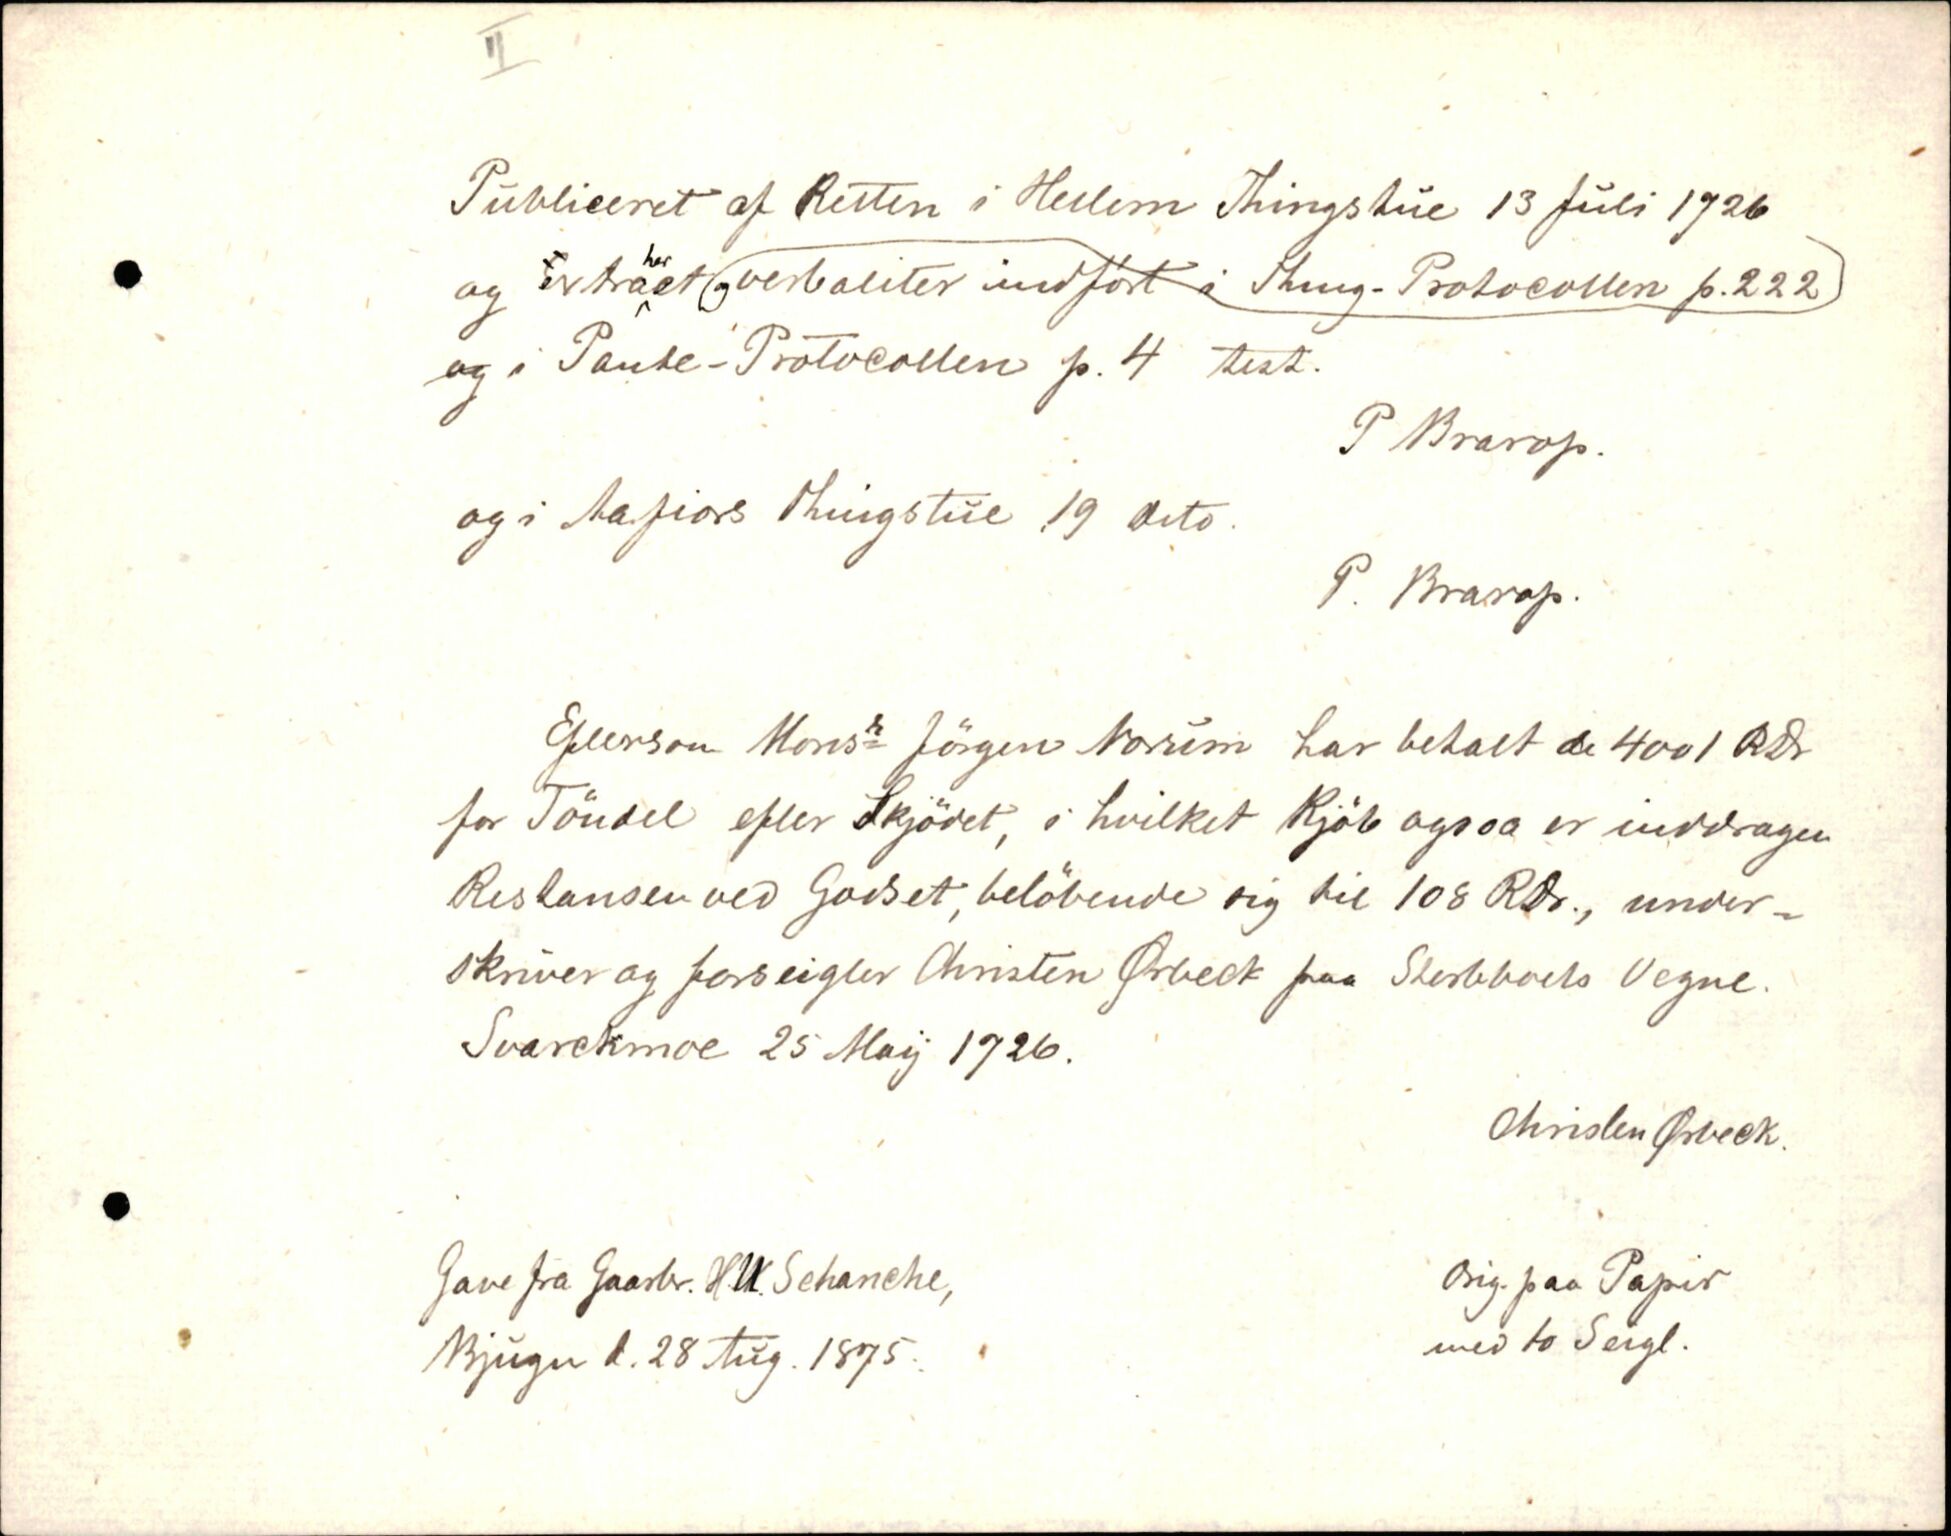 II
Publiceret af Retten i Hellem Thingstue 13 Juli 1726
og Extract her og verbaliter indført i Thing-Protocollen p. 222
og i Pante-Protocollen p. 4 test.
P Brarop.
og i Nafiors Thingstue 19 dito.
P. Brarop.
Eftersom Monsr Jörgen Norum har betalt de 4001 RDr
for Töndel efter Skjödet, i hvilket Kjöb ogsaa er inddragen
Restansen ved Godset, belöbende sig til 108 RDr., under-
skriver og forseigler Christen Ørbeck paa Sterbboets Vegne.
Svarckmoe 25 Maij 1726.
Christen Ørbeck.
Gave fra Gaardbr. H.U. Schanche,
Bjugn d. 28 Aug. 1875.
Orig. paa Papir
med to Seigl.